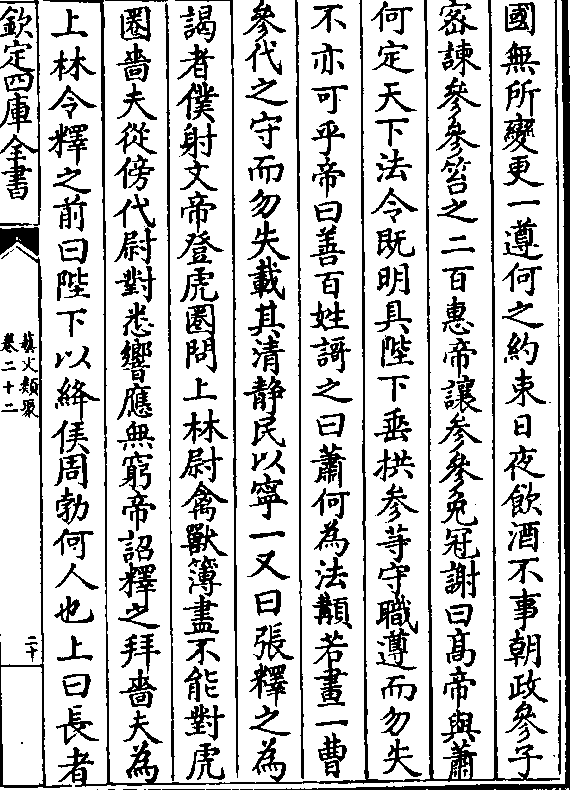 國無所變更一遵何之約束日夜飲酒不事朝政參子
密諫參參笞之二百惠帝讓參參免冠謝曰髙帝與蕭
何定天下法令既明具陛下垂拱参等守職遵而勿失
不亦可乎帝曰善百姓謌之曰蕭何為法顜若畫一曹
參代之守而勿失載其清静民以寧一又曰張釋之為
謁者僕射文帝登虎圏問上林尉禽獸簿盡不能對虎
圏嗇夫從傍代尉對悉響應無窮帝詔釋之拜嗇夫為
上林令釋之前曰陛下以絳侯周勃何人也上曰長者
欽定四庫全書
藝文類聚
卷二十二
二十